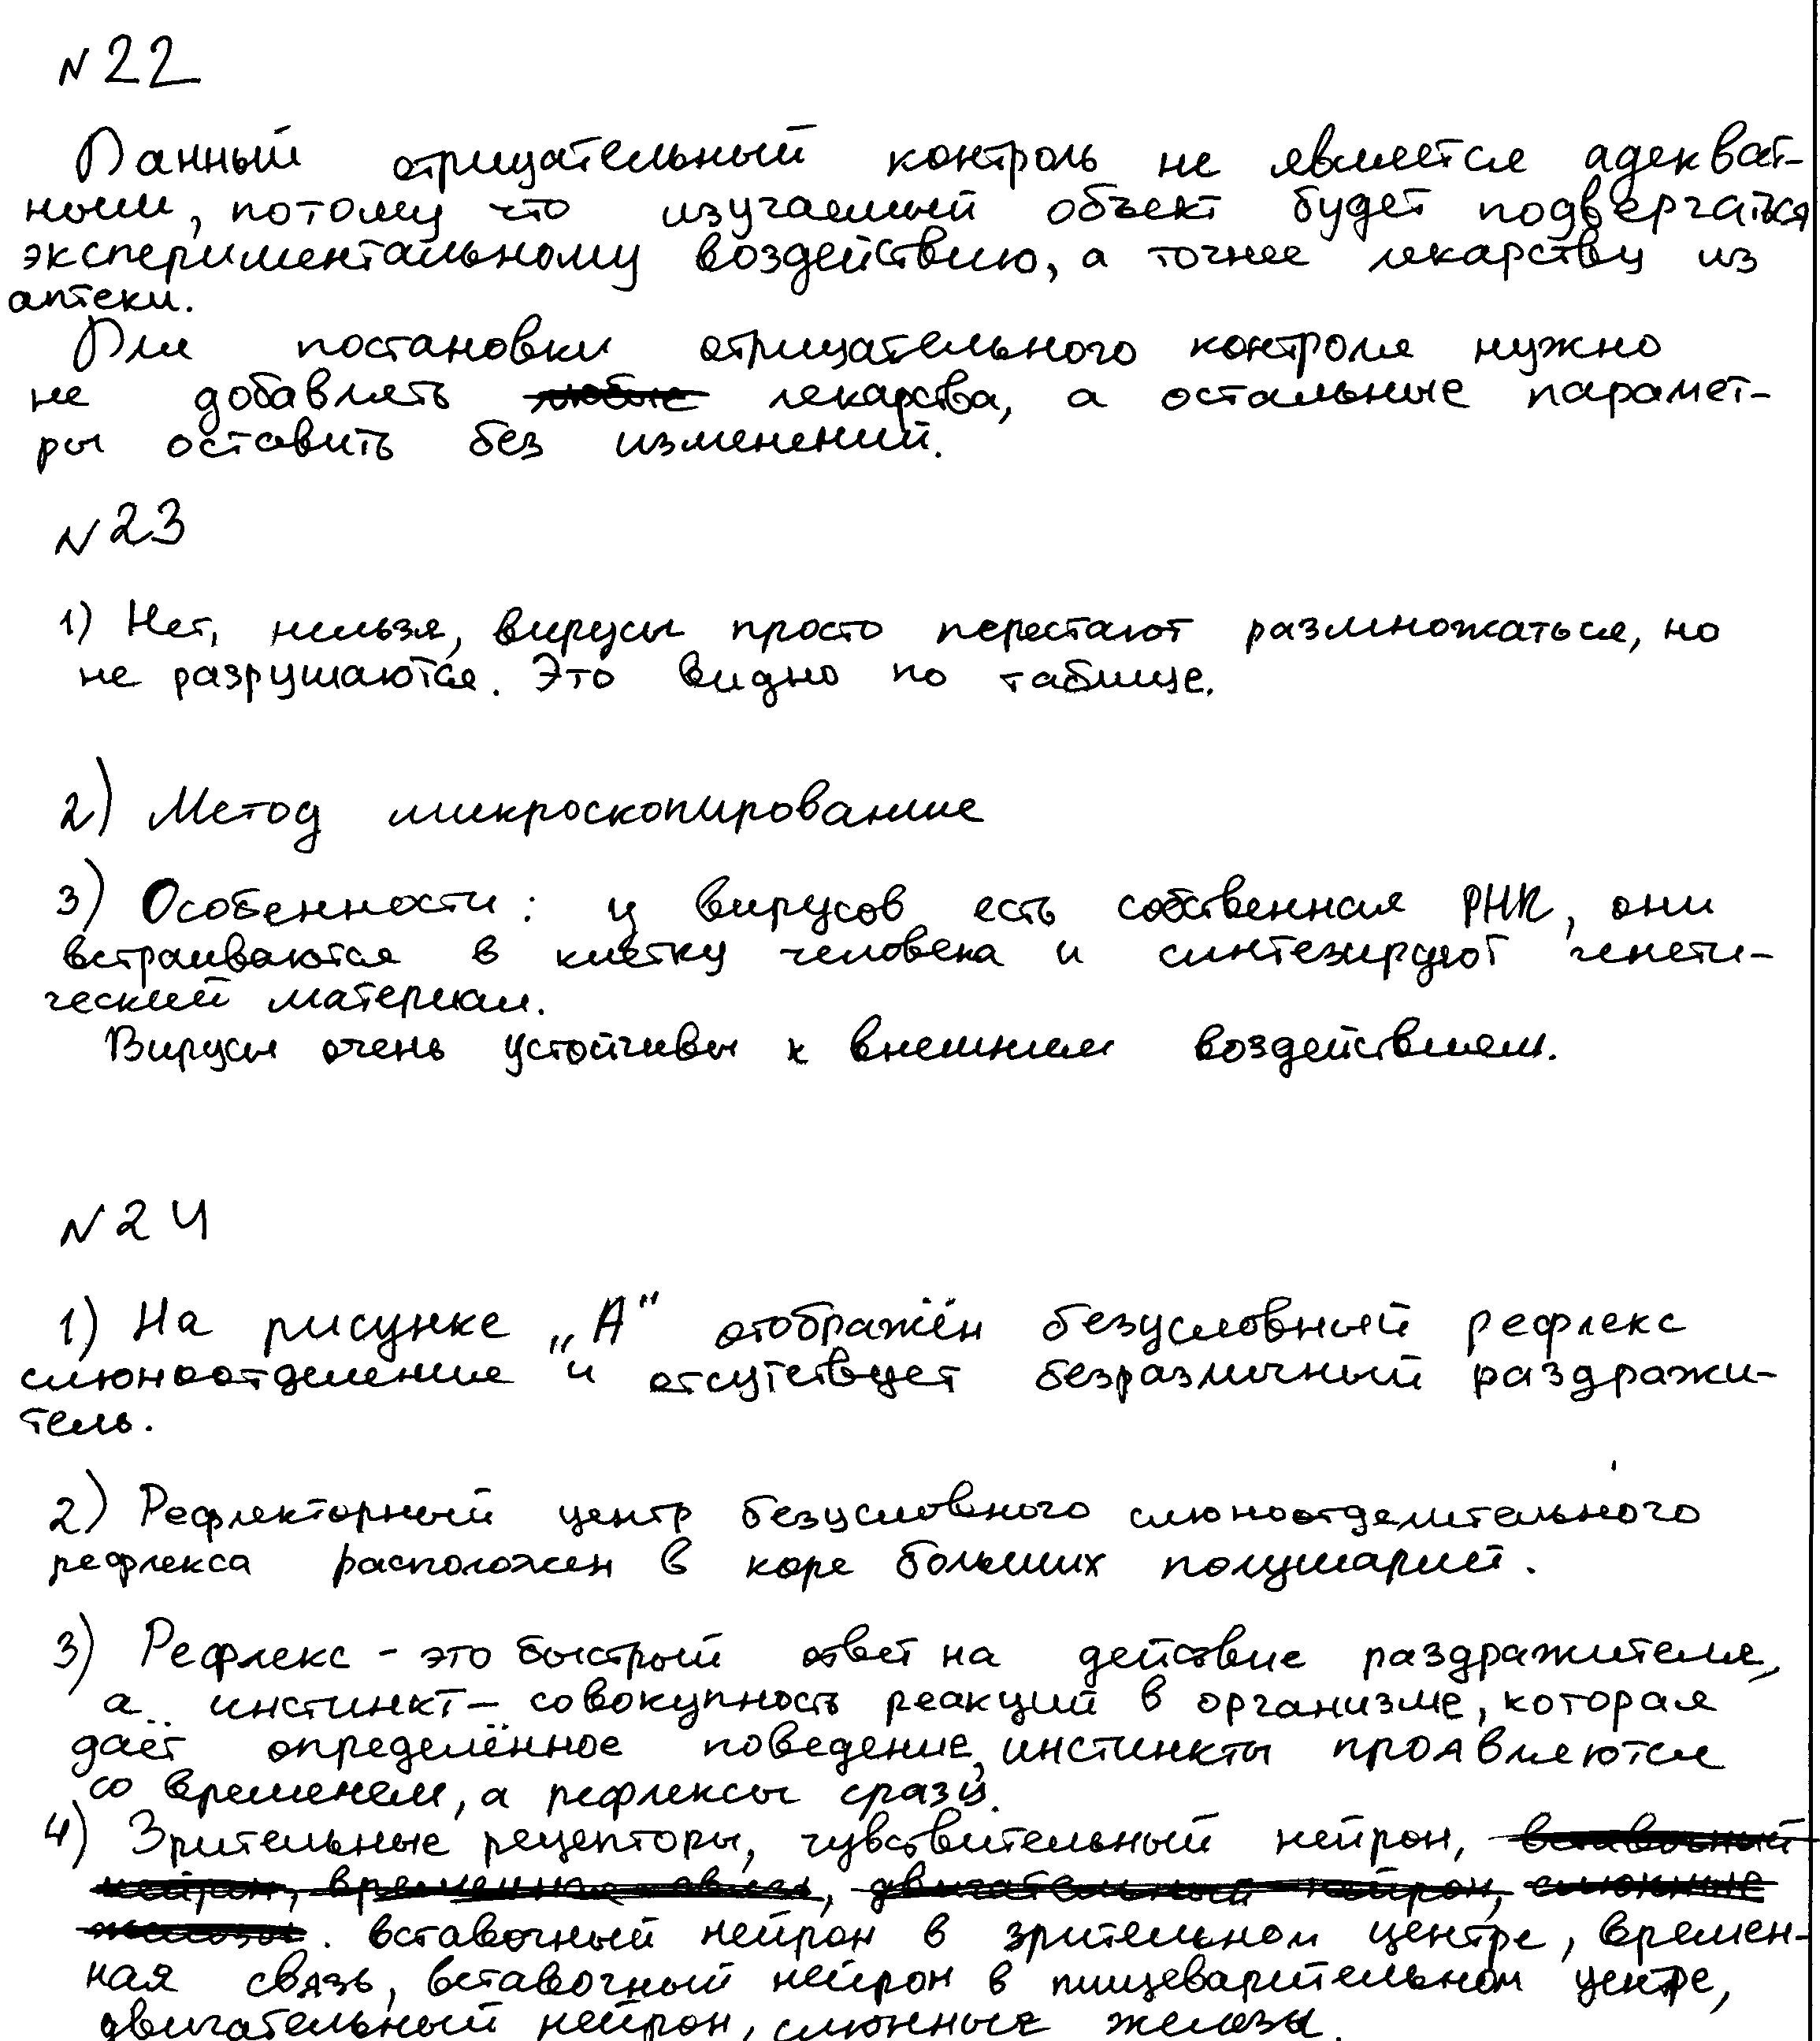 №22
Данный отрицательный контроль не является адекват-
ным, потому что изучаемый объект будет подвергаться
экспериментальному воздействию, а точнее лекарству из
аптеки.
Для постановки отрицательного контроля нужно
не добавлять любые лекарства, а остальные парамет-
ры оставить без изменений.
№23
1) Нет, нельзя, вирусы просто перестают размножаться, но
не разрушаются. Это видно по таблице.
2) Метод микроскопирование
3) Особенности: у вирусов есть собственная РНК, они
встраиваются в клетку человека и синтезируют генети-
ческий материал.
Вирусы очень устойчивы к внешним воздействиям.
№24
1) На рисунке „А" отображён безусловный рефлекс
слюноотделение и отсутствует безразличный раздражи-
тель.
2) Рефлекторный центр безусловного слюноотделительного
рефлекса расположен в коре больших полушарий.
3) Рефлекс - это быстрый ответ на действие раздражителя,
а инстинкт - совокупность реакций в организме, которая
даёт определённое поведение, инстинкты проявляются
со временем, а рефлексы сразу.
4) Зрительные рецепторы, чувствительный нейрон, вставочный
нейрон, временные связи, двигательный нейрон, слюнные
железы. вставочный нейрон в зрительном центре, времен-
ная связь, вставочный нейрон в пищеварительном центре,
двигательный нейрон, слюнные железы.